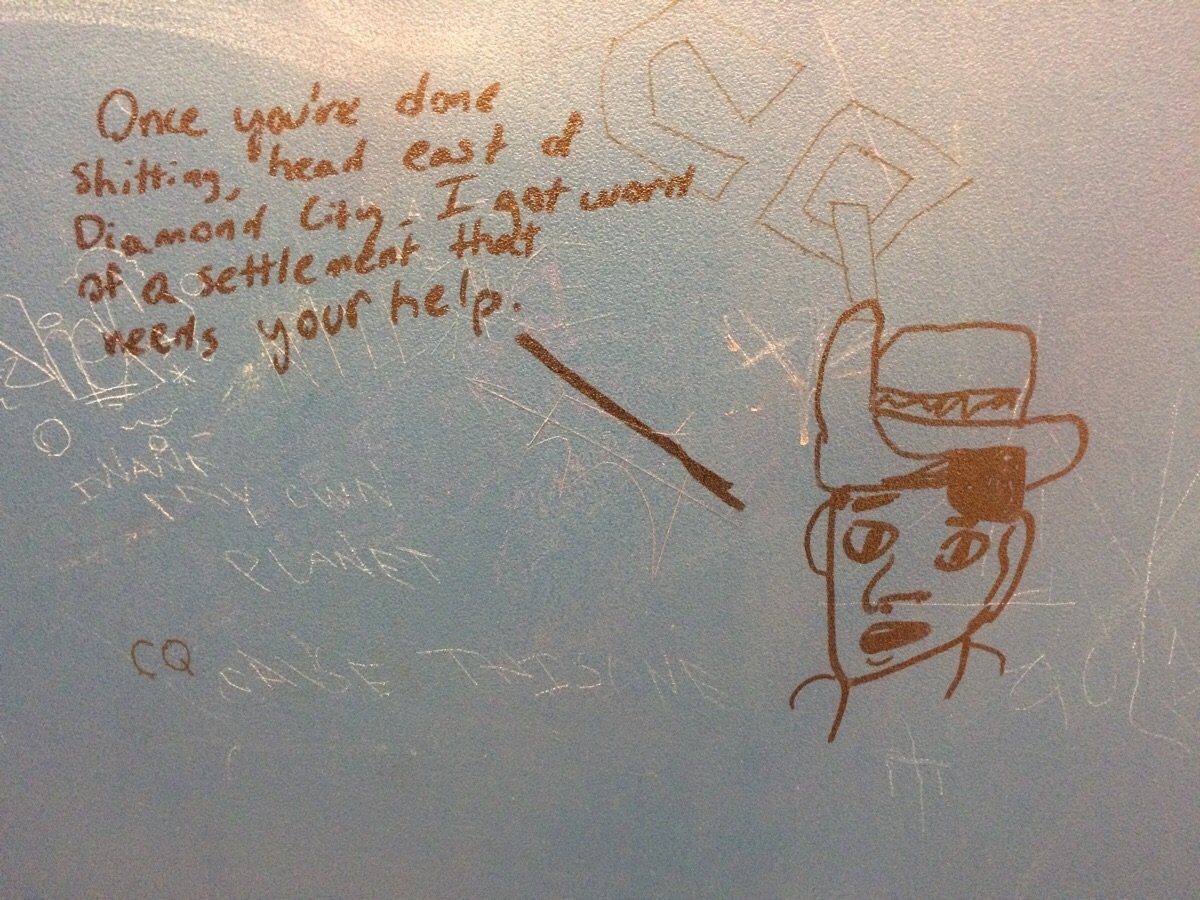 Once you're done
shitting, head east of
Diamond City. I got word
of a settlement that
needs your help.
I WANK
MY OWN
PLANET
CQ
CAUSE THIS ONE